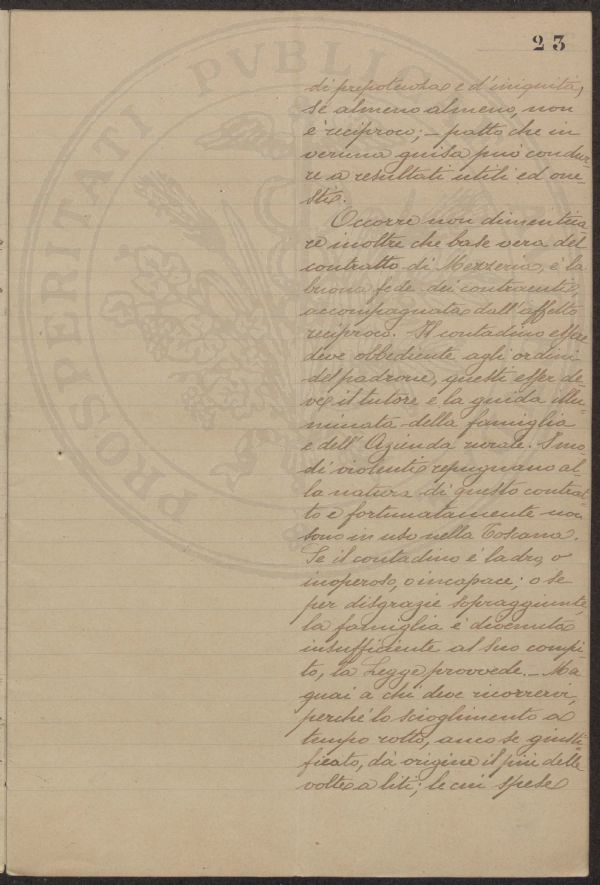 23
PROSPERITATI PVBLIC
di prepotenza e d'iniquità,
se almeno almeno, non
è reciproco; – patto che in
veruna guisa può condur-
re a resultati utili ed one-
sti.
Occorre non dimentica-
re inoltre che base vera del
contratto di Mezzeria, è la
buona fede dei contraenti,
accompagnata dall'affetto
reciproco. Il contadino esser
deve obbediente agli ordini
del padrone, questi esser de-
ve il tutore e la guida illu-
minata della famiglia
e dell'Azienda rurale. I mo-
di violenti repugnano al-
la natura di questo contrat-
to e fortunatamente non
sono in uso nella Toscana.
Se il contadino è ladro, o
inoperoso, o incapace; o se
per disgrazie sopraggiunte,
la famiglia è divenuta
insufficiente al suo compi-
to, la Legge provvede. – Ma
guai a chi deve ricorrervi,
perché lo scioglimento a
tempo rotto, anco se giusti-
ficato, dà origine il più delle
volte a liti; le cui spese